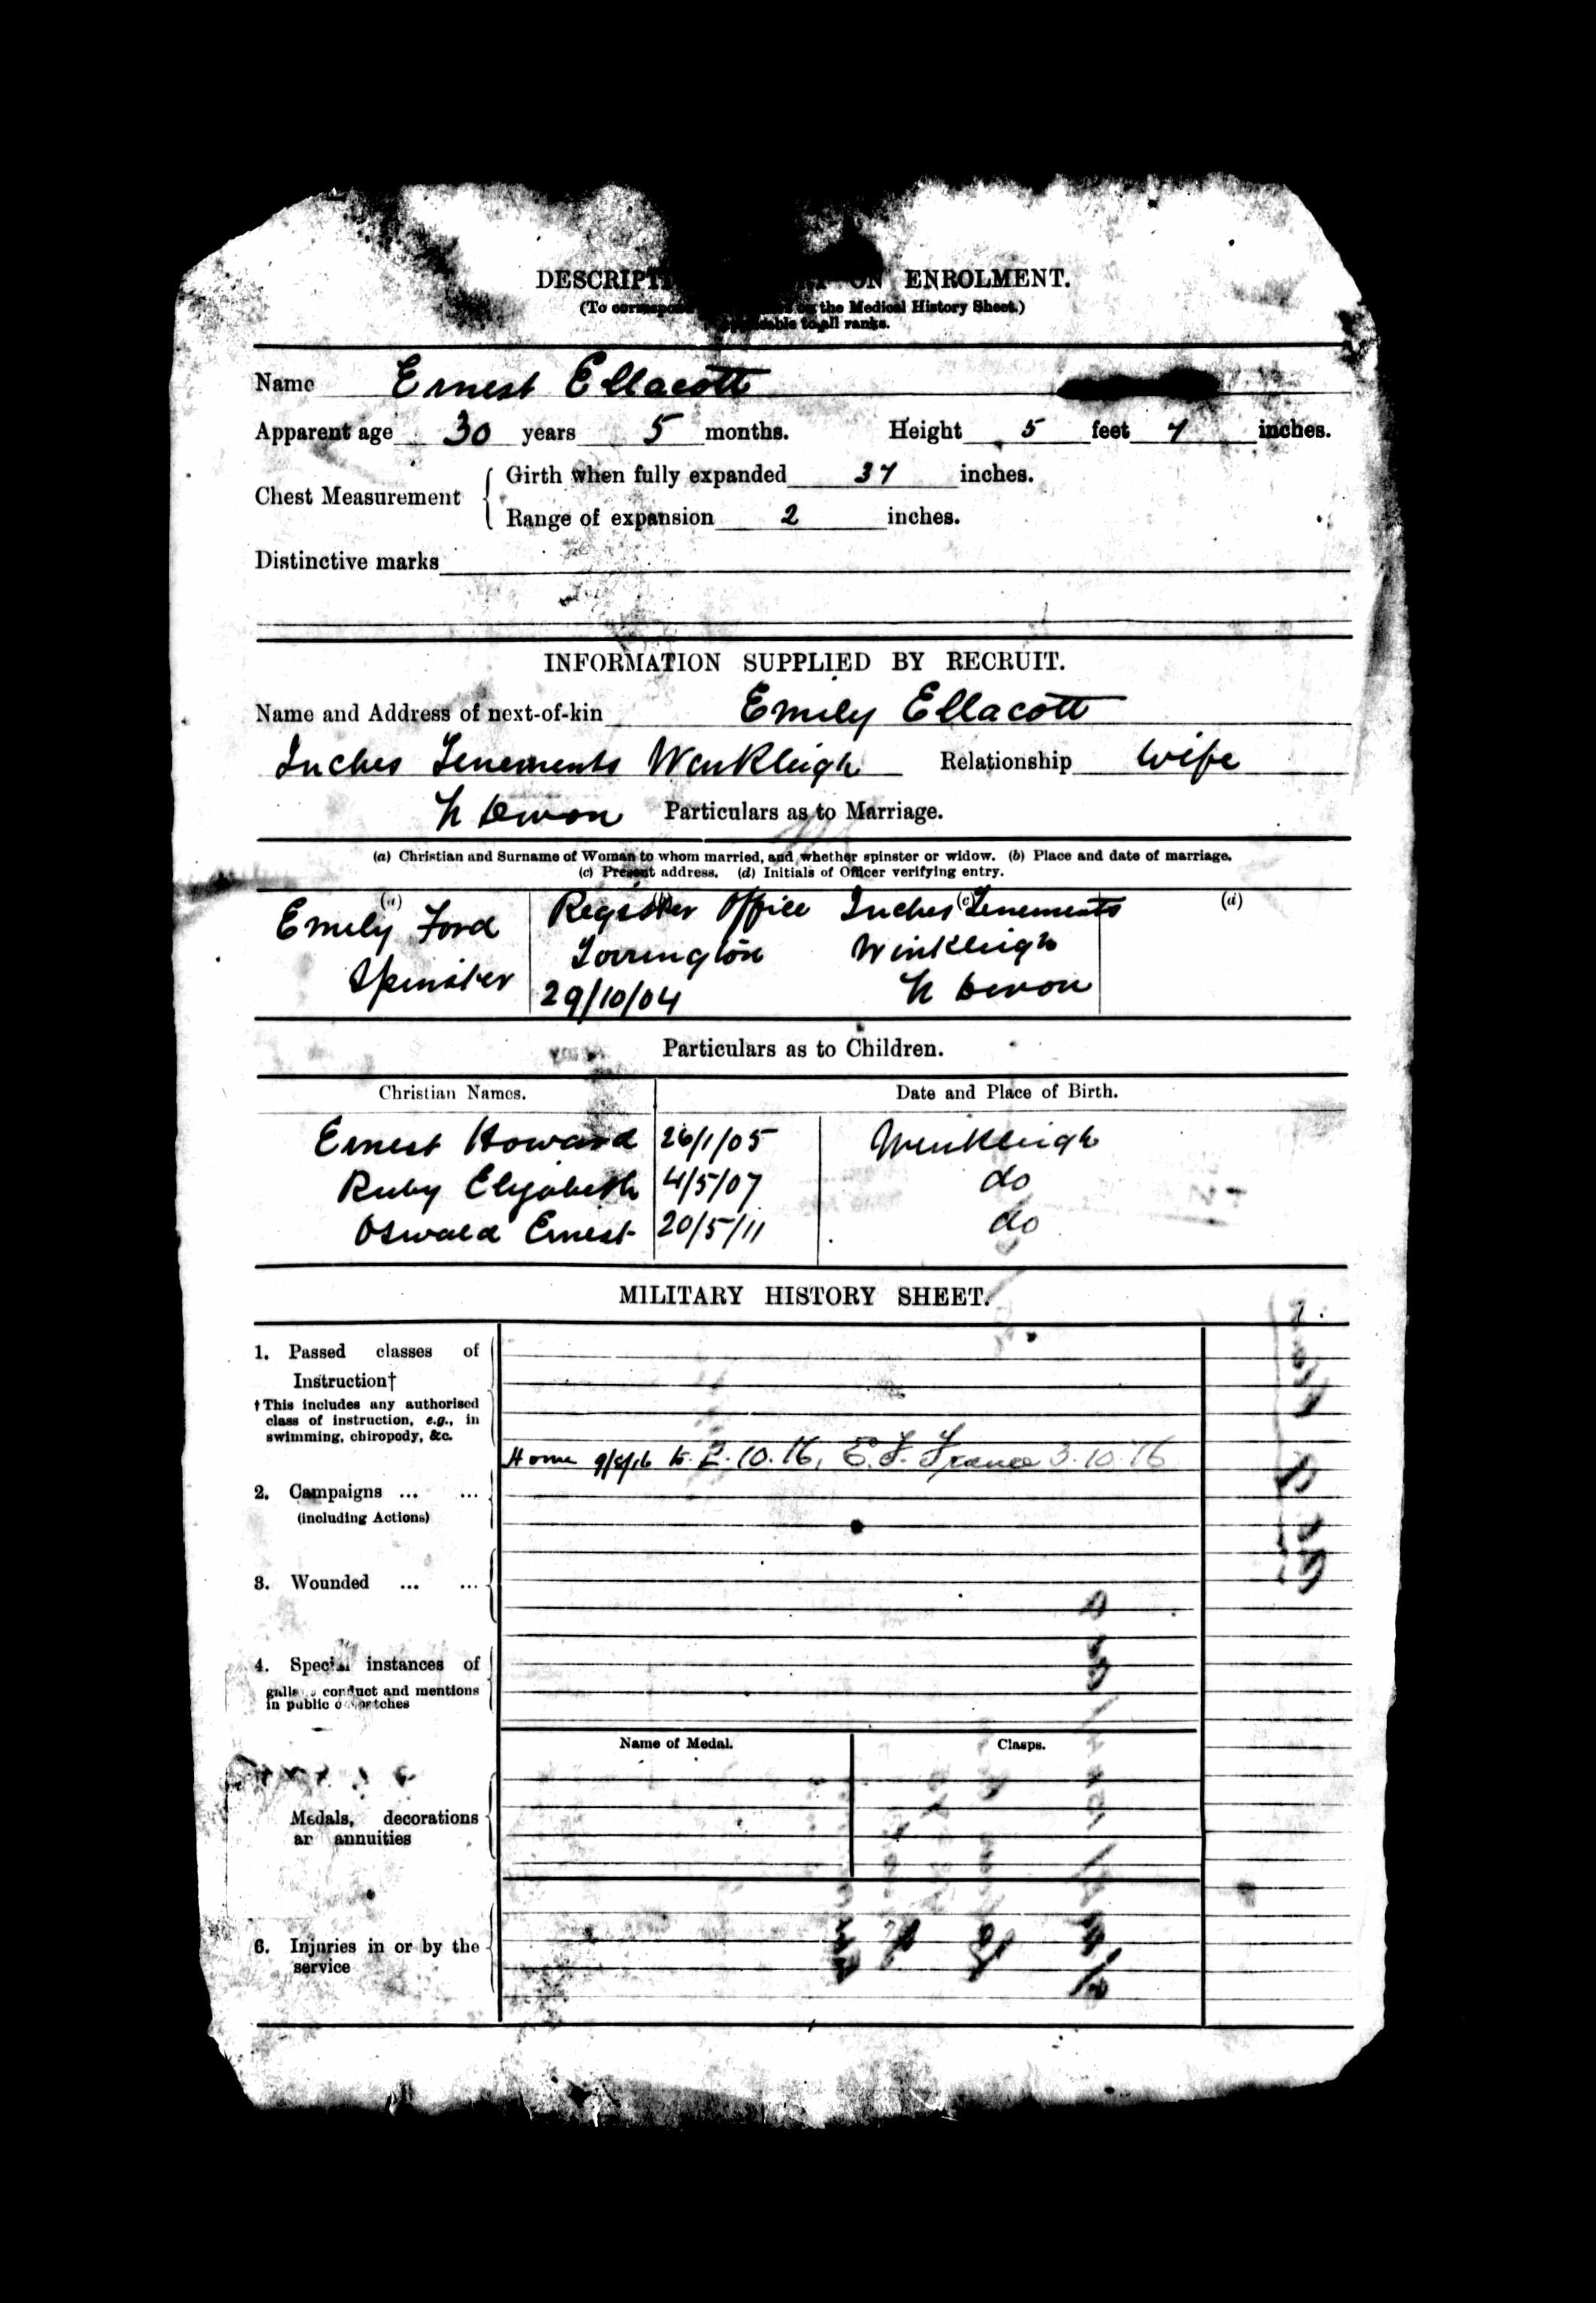 DESCRIPT ON ENROLMENT.
(To correspond on the Medical History Sheet.)
Applicable to all ranks.
Name Ernest Ellacott
Apparent age 30 years 5 months. Height 5 feet 7 inches.
Chest Measurement { Girth when fully expanded 37 inches.
Range of expansion 2 inches.
Distinctive marks
INFORMATION SUPPLIED BY RECRUIT.
Name and Address of next-of-kin Emily Ellacott
Inches Tenements Winkleigh Relationship Wife
N Devon Particulars as to Marriage.
(a) Christian and Surname of Woman to whom married, and whether spinster or widow. (b) Place and date of marriage.
(c) Present address. (d) Initials of Officer verifying entry.
(a) (c) (d)
Emily Ford Register Office Inches Tenements
Spinster Torrington Winkleigh
29/10/04 N Devon
Particulars as to Children.
Christian Names. Date and Place of Birth.
Ernest Howard 26/1/05 Winkleigh
Ruby Elizabeth 4/5/07 do
Oswald Ernest 20/5/11 do
MILITARY HISTORY SHEET.
1. Passed classes of
Instruction†
†This includes any authorised
class of instruction, e.g., in
swimming, chiropody, &c.
Home 9/8/16 to 2.10.16, E.F. France 3.10.16
2. Campaigns ... ...
(including Actions)
3. Wounded ... ...
4. Special instances of
conduct and mentions
in public
Name of Medal. Clasps.
Medals, decorations
annuities
6. Injuries in or by the
service